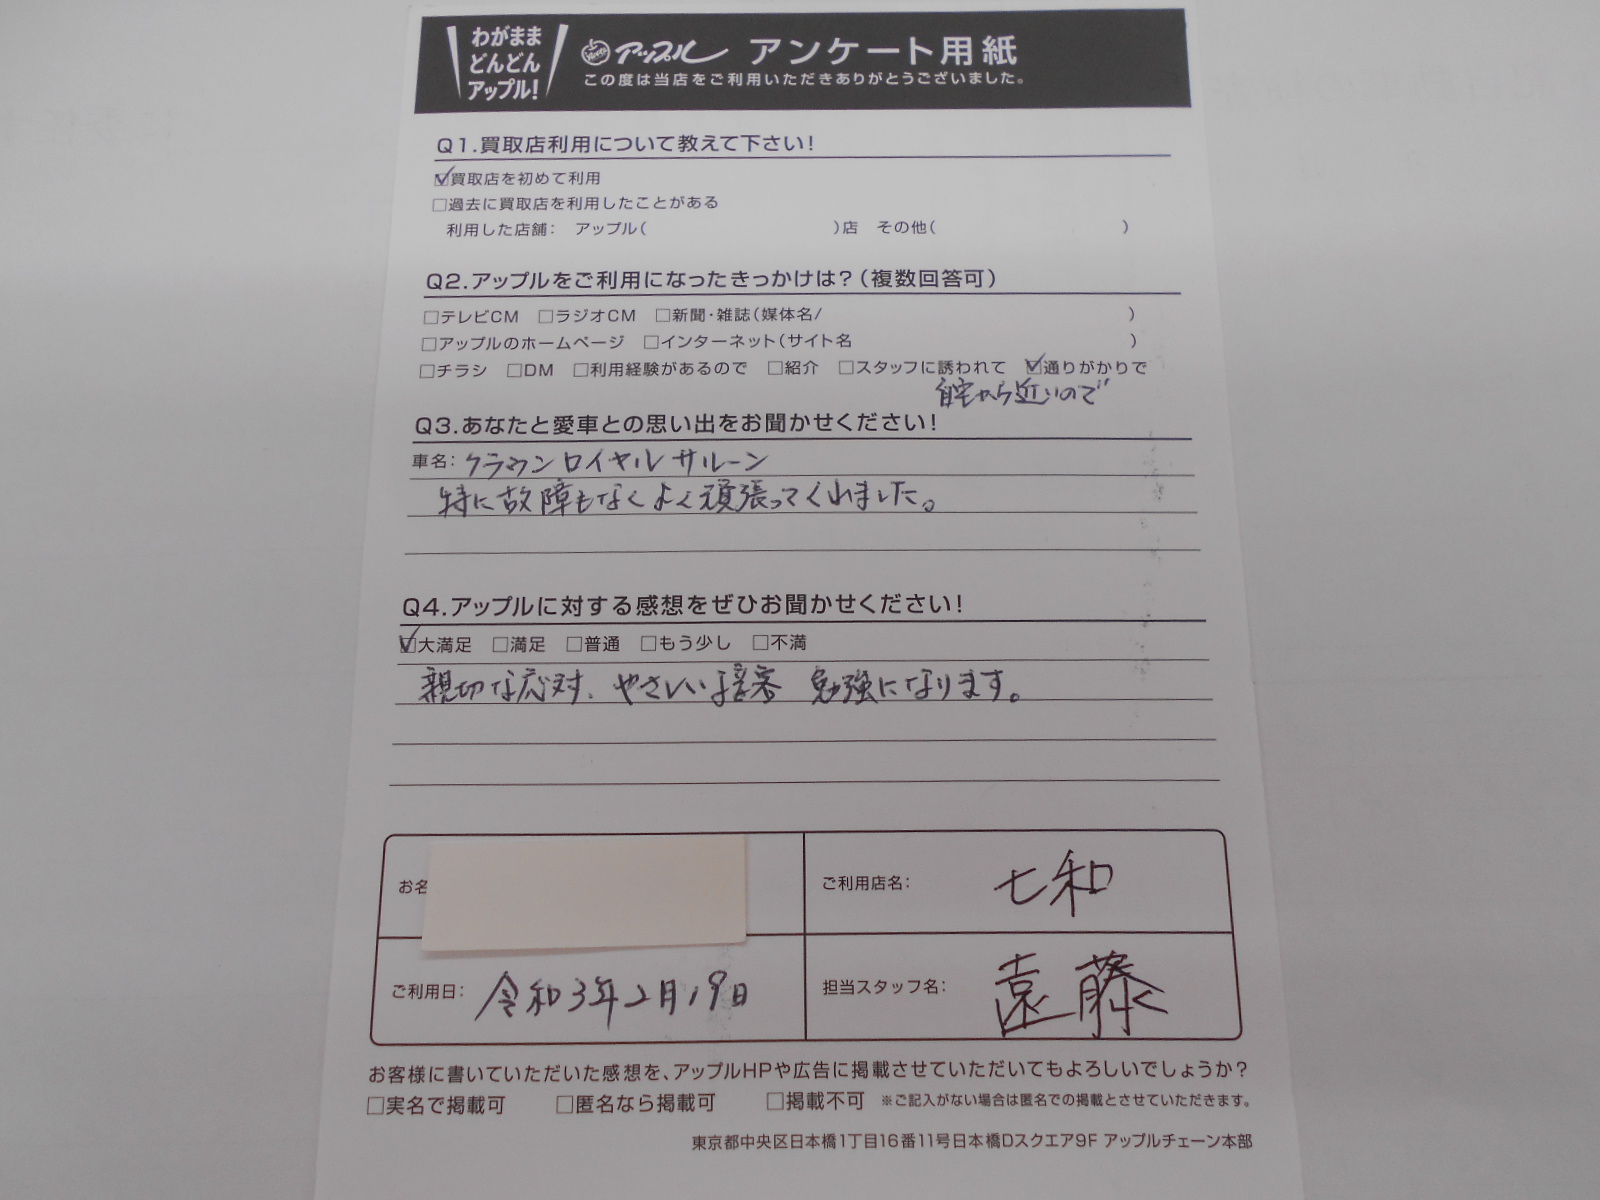 わがまま
どんどん
アップル!
アップル アンケート用紙
この度は当店をご利用いただきありがとうございました。
Q1.買取店利用について教えて下さい!
☑買取店を初めて利用
□過去に買取店を利用したことがある
利用した店舗: アップル( )店 その他( )
Q2.アップルをご利用になったきっかけは?(複数回答可)
□テレビCM □ラジオCM □新聞・雑誌(媒体名/ )
□アップルのホームページ □インターネット(サイト名 )
□チラシ □DM □利用経験があるので □紹介 □スタッフに誘われて ☑通りがかりで
自宅から近いので
Q3.あなたと愛車との思い出をお聞かせください!
車名: クラウンロイヤルサルーン
特に故障もなくよく頑張ってくれました。
Q4.アップルに対する感想をぜひお聞かせください!
☑大満足 □満足 □普通 □もう少し □不満
親切な応対、やさしい接客 勉強になります。
お名
ご利用店名: 七和
ご利用日: 令和3年2月19日
担当スタッフ名: 遠藤
お客様に書いていただいた感想を、アップルHPや広告に掲載させていただいてもよろしいでしょうか?
□実名で掲載可 □匿名なら掲載可 □掲載不可 ※ご記入がない場合は匿名での掲載とさせていただきます。
東京都中央区日本橋1丁目16番11号日本橋Dスクエア9F アップルチェーン本部